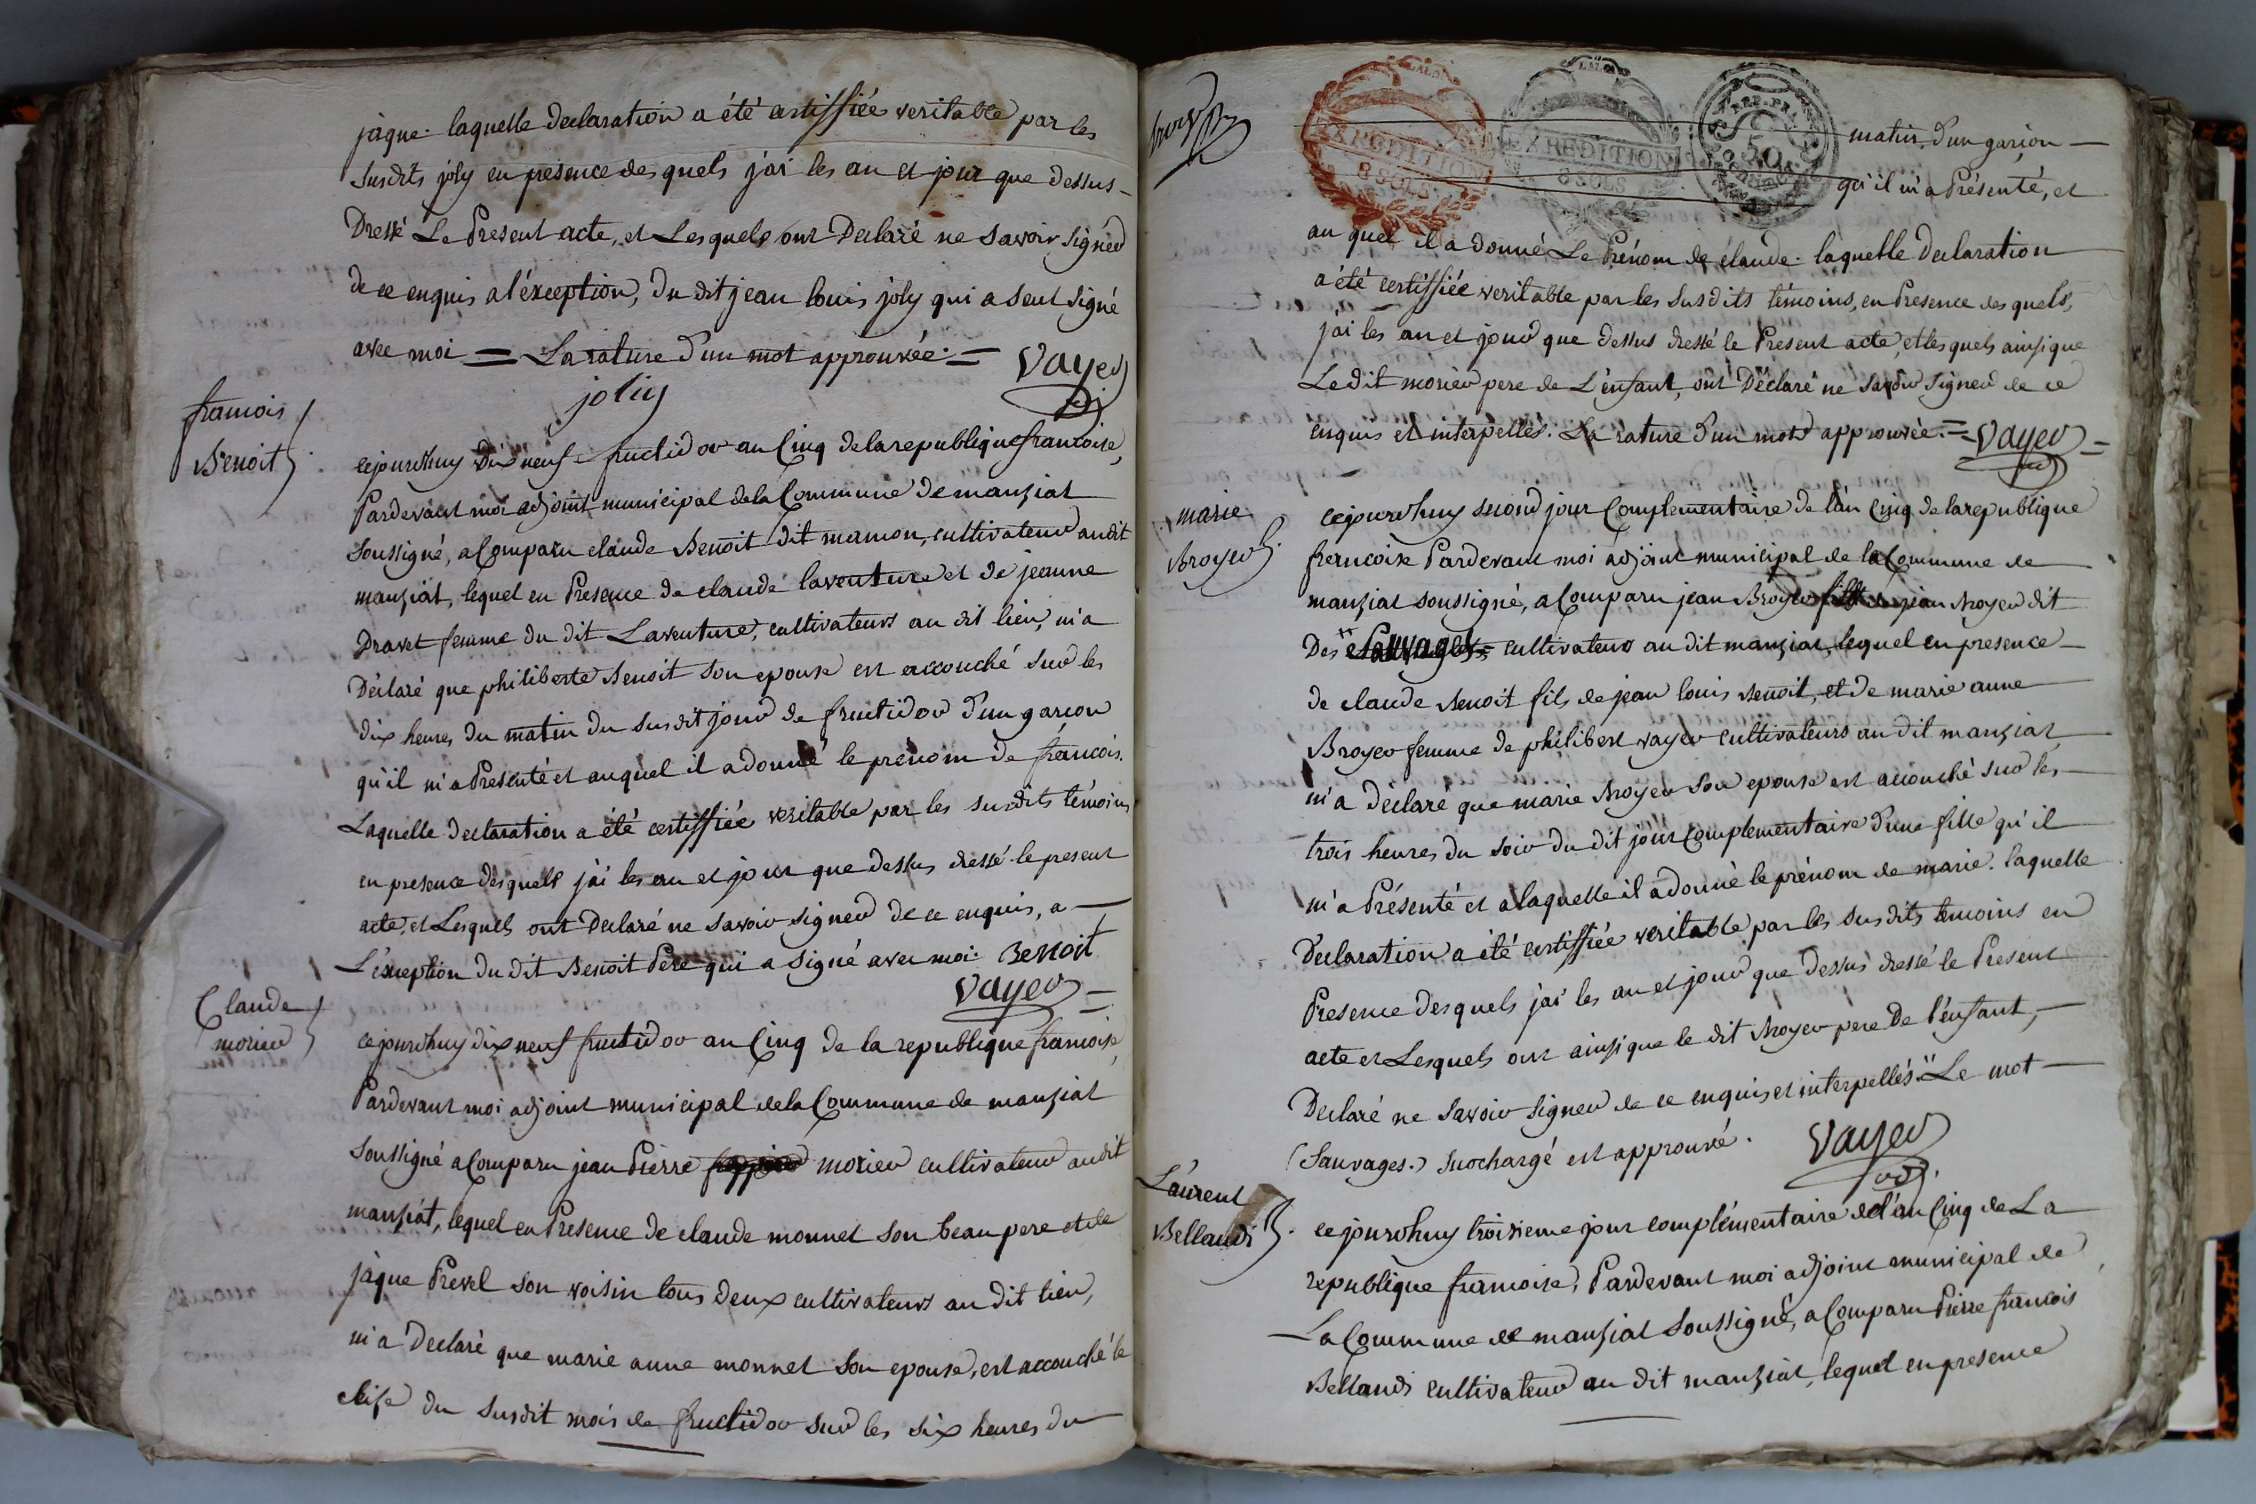 jaque. laquelle declaration a été certiffiée veritable par les
susdits joly en presence desquels j'ai les an et jour que dessus
Dressé Le Present acte, et Lesquels ont Declaré ne savoir signer
de ce enquis a l'éxception, du dit jean louis joly qui a seul signé
avec moi = La rature d'un mot approuvée. =
Vayer
joliy
francois
Benoit
cejourdhuy Dix neuf fructidor an Cinq de la republique francoise,
Pardevant moi adjoint municipal de la Commune de manziat
soussigné, a Comparu claude Benoit dit mamon, cultivateur au dit
manziat, lequel en Presence de claude laventure et de jeanne
Dravet femme du dit Laventure, cultivateurs au dit lieu, m'a
Déclaré que philiberte Benoit son epouse est accouché sur les
dix heures du matin du susdit jour de fructidor d'un garcon
qu'il m'a Presenté et auquel il a donné le prénom de francois.
Laquelle declaration a été certiffiée veritable par les susdits témoins
en presence desquels j'ai les an et jour que dessus dressé le present
acte, et Lesquels ont Declaré ne savoir signer de ce enquis, a
L'exception du dit Benoit Pere qui a signé avec moi. Benoit
Vayer
Claude
morier
cejourdhuy dix neuf fructidor an Cinq de la republique francoise,
Pardevant moi adjoint municipal de la Commune de manziat
soussigné a Comparu jean Pierre morier cultivateur au dit
manziat, lequel en Presence de claude monnet son beau pere et de
jaque Prevel son voisin tous deux cultivateurs au dit lieu,
m'a Declaré que marie anne monnet son epouse, est accouché le
du susdit mois de fructidor sur les six heures du
EXPEDITION
8 SOLS
EXPEDITION
8 SOLS
50
matin, d'un garçon
qu'il m'a Présenté, et
au quel il a donné Le Prénom de claude. laquelle Declaration
a été certiffiée veritable par les susdits témoins, en Presence desquels,
j'ai les an et jour que dessus dressé le Present acte, et lesquels ainsi que
Le dit morier pere de L'enfant, ont Déclaré ne savoir signer de ce
enquis et interpellés. La rature d'un mot approuvée. = Vayer =
marie
Broyer
cejourdhuy second jour Complementaire de l'an Cinq de la republique
francoise Pardevant moi adjoint municipal de la Commune de
manziat soussigné, a Comparu jean Broyer fils de jean Broyer dit
Des Sauvages cultivateur au dit manziat, lequel en presence
de claude Benoit fils de jean louis Benoit, et de marie anne
Broyer femme de philibert vayer cultivateurs au dit manziat
m'a déclaré que marie Broyer son epouse est accouché sur les
trois heures du soir du dit jour Complementaire d'une fille qu'il
m'a Présenté et a laquelle il a donné le prénom de marie. laquelle
Declaration a été certiffiée veritable par les susdits temoins en
Presence desquels j'ai les an et jour que dessus dressé le Present
acte et Lesquels ont ainsi que le dit Broyer pere De l'enfant,
Declaré ne savoir signer de ce enquis et interpellés. Le mot
(Sauvages.) surchargé est approuvé.
Vayer
Laurent
Bellaudi
cejourdhuy troisieme jour complémentaire de l'an Cinq de La
republique francoise, Pardevant moi adjoint municipal de
La Commune de manziat soussigné, a Comparu Pierre francois
Bellaudi cultivateur au dit manziat, lequel en presence